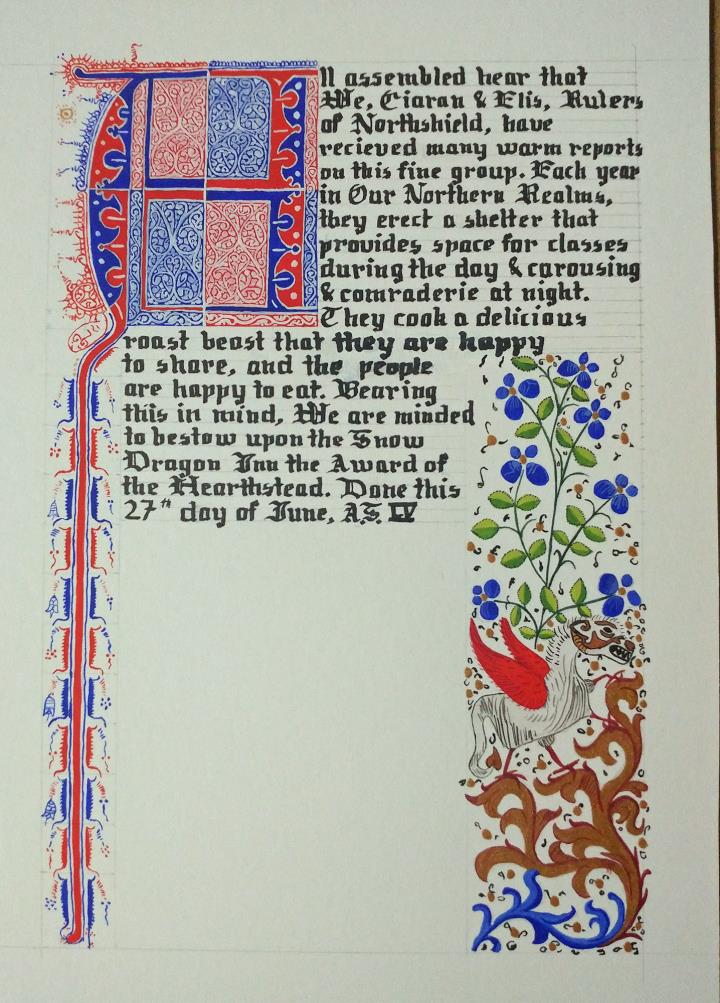 All assembled hear that
We, Ciaran & Elis, Rulers
of Northshield, have
recieved many warm reports
on this fine group. Each year
in Our Northern Realms,
they erect a shelter that
provides space for classes
during the day & carousing
& comraderie at night.
They cook a delicious
roast beast that they are happy
to share, and the people
are happy to eat. Bearing
this in mind, We are minded
to bestow upon the Snow
Dragon Inn the Award of
the Hearthstead. Done this
27th day of June, A.S. IV